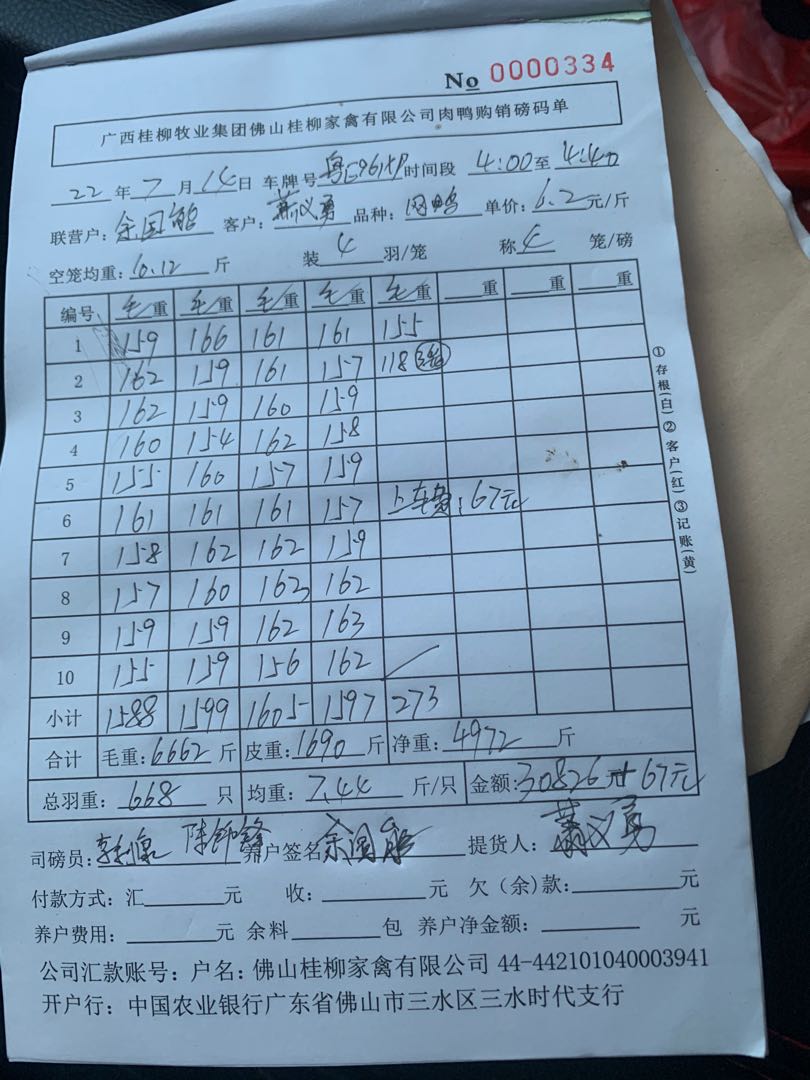 No 0000334
广西桂柳牧业集团佛山桂柳家禽有限公司肉鸭购销磅码单
22年7月14日 车牌号 粤E961XP 时间段 4:00至4:40
联营户：余国能 客户：萧义勇 品种： 单价：6.2元/斤
空笼均重：10.12斤 装4羽/笼 称4笼/磅
编号 毛重 毛重 毛重 毛重 毛重 重 重 重
1 159 166 161 161 155
2 162 159 161 157 118
3 162 159 160 159
4 160 154 162 158
5 155 160 157 159
6 161 161 161 157 上车费：67元
7 158 162 162 159
8 157 160 162 162
9 159 159 162 163
10 155 159 156 162
小计 1588 1599 1605 1597 273
合计 毛重：6662斤 皮重：1690斤 净重：4972斤
总羽重：668只 均重：7.44斤/只 金额：30826+67元
司磅员： 养户签名 余国能 提货人：萧义勇
付款方式：汇 元 收： 元 欠（余）款： 元
养户费用： 元 余料 包 养户净金额： 元
公司汇款账号：户名：佛山桂柳家禽有限公司 44-442101040003941
开户行：中国农业银行广东省佛山市三水区三水时代支行
①存根(白)②客户(红)③记账(黄)